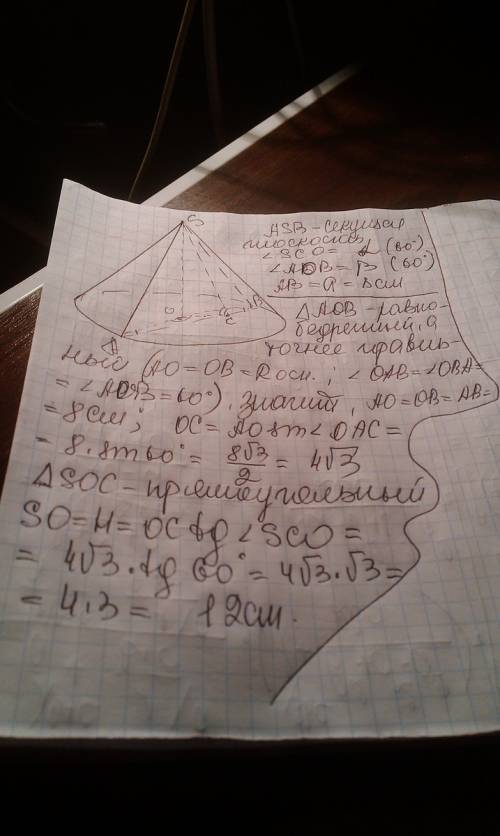 S
A
B
C
O
ASB - секущая
плоскость
∠SCO = α (60°)
∠AOB = β (60°)
AB = a = 8см
△AOB - равно-
бедренный, а
точнее правиль-
ный (AO = OB = R осн.; ∠OAB = ∠OBA =
= ∠AOB = 60°), значит, AO = OB = AB =
= 8см; OC = AO sin∠OAC =
= 8·sin60° = 8√3/2 = 4√3
△SOC - прямоугольный
SO = H = OC tg∠SCO =
= 4√3·tg 60° = 4√3·√3 =
= 4·3 = 12см.